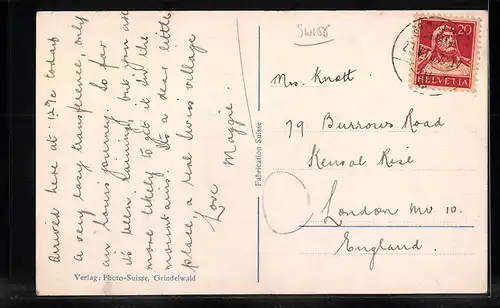 Arrived here at 12.9c today
a very easy transference, only
an hours journey. So far
its been raining, but you are
more likely to get it in the
mountains. Its a dear little
place, a real Swiss village
Love Maggie.
Verlag: Photo-Suisse, Grindelwald
Fabrication Suisse
SWISS
20
HELVETIA
Mrs. Knott
79 Burrows Road
Kensal Rise
London NW 10.
England.